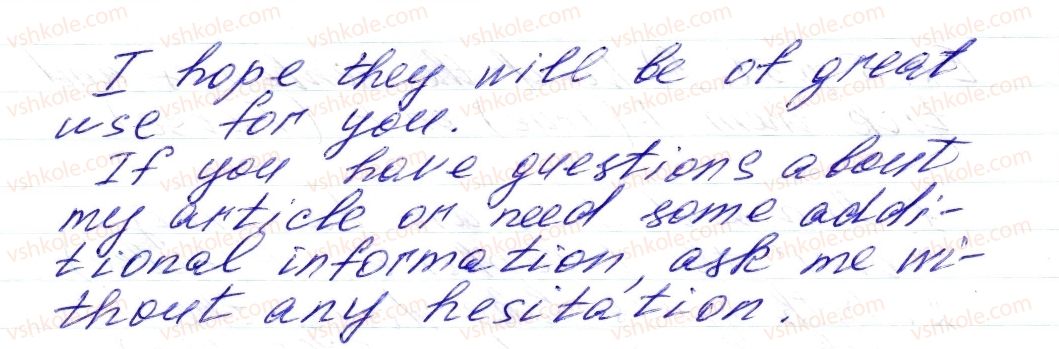 I hope they will be of great
use for you.
If you have questions about
my article or need some addi-
tional information, ask me wi-
thout any hesitation.